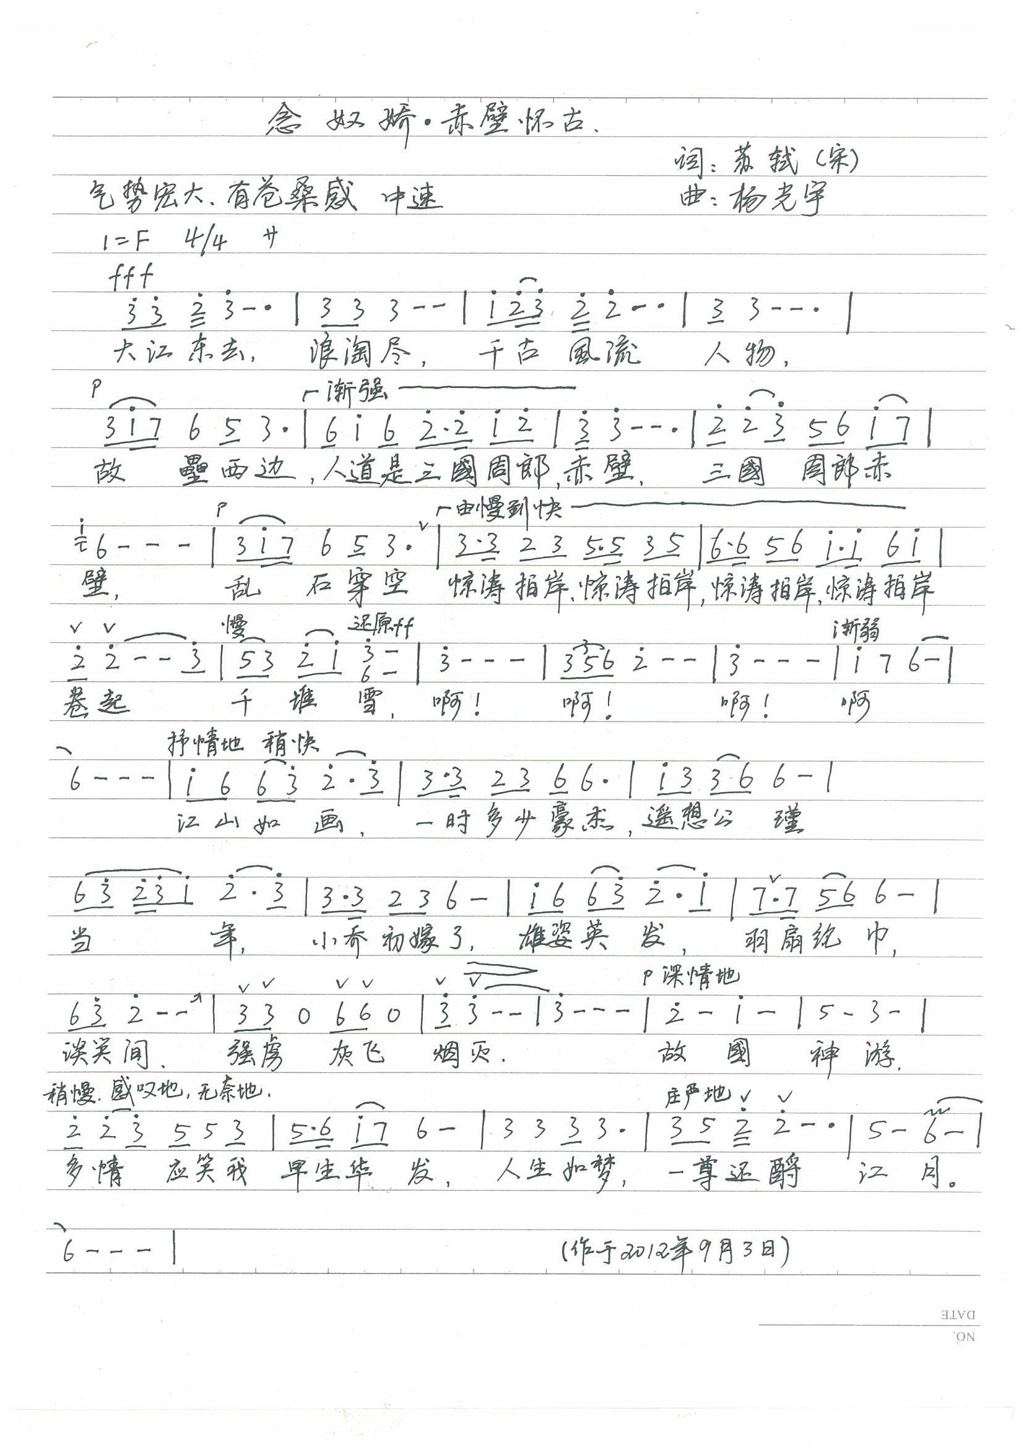 念奴娇·赤壁怀古.
词：苏轼（宋）
气势宏大、有苍桑感 中速
曲：杨光宇
1=F 4/4 サ
fff
3̇ 3̇ 2̇ 3̇ - - · | 3 3 3 - - | 1̇ 2̇ 3̇ 2̇ 2̇ - - · | 3 3 - - - · |
大江东去, 浪淘尽, 千古風流 人物,
p ┌渐强
3 1̇ 7 6 5 3 · | 6 1̇ 6 2̇ · 2̇ 1̇ 2̇ | 3̇ 3̇ - - - · | 2̇ 2̇ 3̇ 5 6 1̇ 7 |
故 壘西边, 人道是三國周郎, 赤壁, 三國 周郎赤
p ∨ ┌由慢到快
1̇ 6 - - - | 3 1̇ 7 6 5 3 · | 3 · 3 2 3 5 · 5 3 5 | 6 · 6 5 6 1̇ · 1̇ 6 1̇ |
壁, 乱 石穿空 惊涛拍岸, 惊涛拍岸, 惊涛拍岸, 惊涛拍岸
∨ ∨ 慢 还原ff 渐弱
2̇ 2̇ - - 3̇ | 5 3 2̇ 1̇ 3̇ 6 - - | 3̇ - - - | 3 5 6 2̇ - - | 3̇ - - - | 1̇ 7 6 - |
卷起 千堆雪, 啊! 啊! 啊! 啊
抒情地 稍快
6 - - - | 1̇ 6 6 3̇ 2̇ · 3̇ | 3 · 3 2 3 6 6 · | 1̇ 3 3 6 6 - |
江山如 画, 一时多少豪杰, 遥想公 瑾
6 3̇ 2̇ 3̇ 1̇ 2̇ · 3̇ | 3 · 3 2 3 6 - | 1̇ 6 6 3̇ 2̇ · 1̇ | 7 · 7 5 6 6 - |
当 年, 小乔初嫁了, 雄姿英 发, 羽扇纶 巾,
p 深情地
6 3̇ 2̇ - - | 3 3 0 6 6 0 | 3̇ 3̇ - - | 3̇ - - - | 2̇ - 1̇ - | 5 - 3 - |
谈笑间, 强虏 灰飞 烟灭. 故 國 神 游.
稍慢. 感叹地, 无奈地. 庄严地 ∨ ∨
2̇ 2̇ 3̇ 5 5 3 | 5 · 6 1̇ 7 6 - | 3 3 3 3 · | 3 5 2̇ 2̇ - · | 5 - 6 - |
多情 应笑我 早生华 发, 人生如梦, 一尊还酹 江 月。
6 - - - |
(作于2012年9月3日)
DATE
NO.